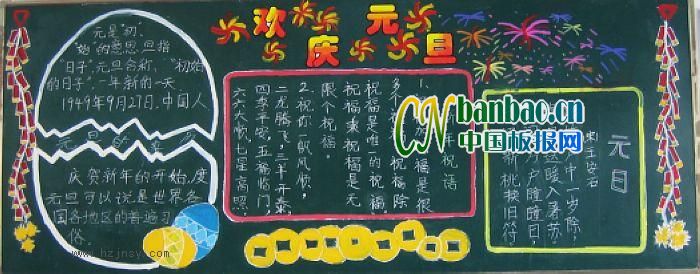 欢庆元旦
元是"初"、
"始"的意思,旦指
"日子",元旦合称,"初始
的日子",一年新的一天,
1949年9月27日,中国人
元旦的
庆贺新年的开始,度
元旦可以说是世界各
国各地区的普遍习
俗。
年祝语
福是很
多个祝福,祝福除
祝福是唯一的祝福,
祝福乘祝福是无
限个祝福。
2.祝你一帆风顺,
二龙腾飞,三羊开泰,
四季平安,五福临门,
六六大顺,七星高照
元旦
宋王安石
中一岁除,
送暖入屠苏
户曈曈日,
新桃换旧符
CN banbao.cn
中国板报网
www.hzjnsy.com